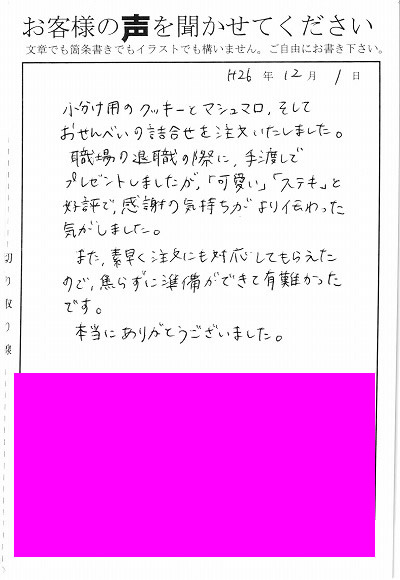 お客様の声を聞かせてください
文章でも箇条書きでもイラストでも構いません。ご自由にお書き下さい。
H26年12月1日
小分け用のクッキーとマシュマロ、そして
おせんべいの詰合せを注文いたしました。
職場の退職の際に、手渡しで
プレゼントしましたが、「可愛い」「ステキ」と
好評で、感謝の気持ちがより伝わった
気がしました。
また、素早く注文にも対応してもらえた
ので、焦らずに準備ができて有難かった
です。
本当にありがとうございました。
切り取り線